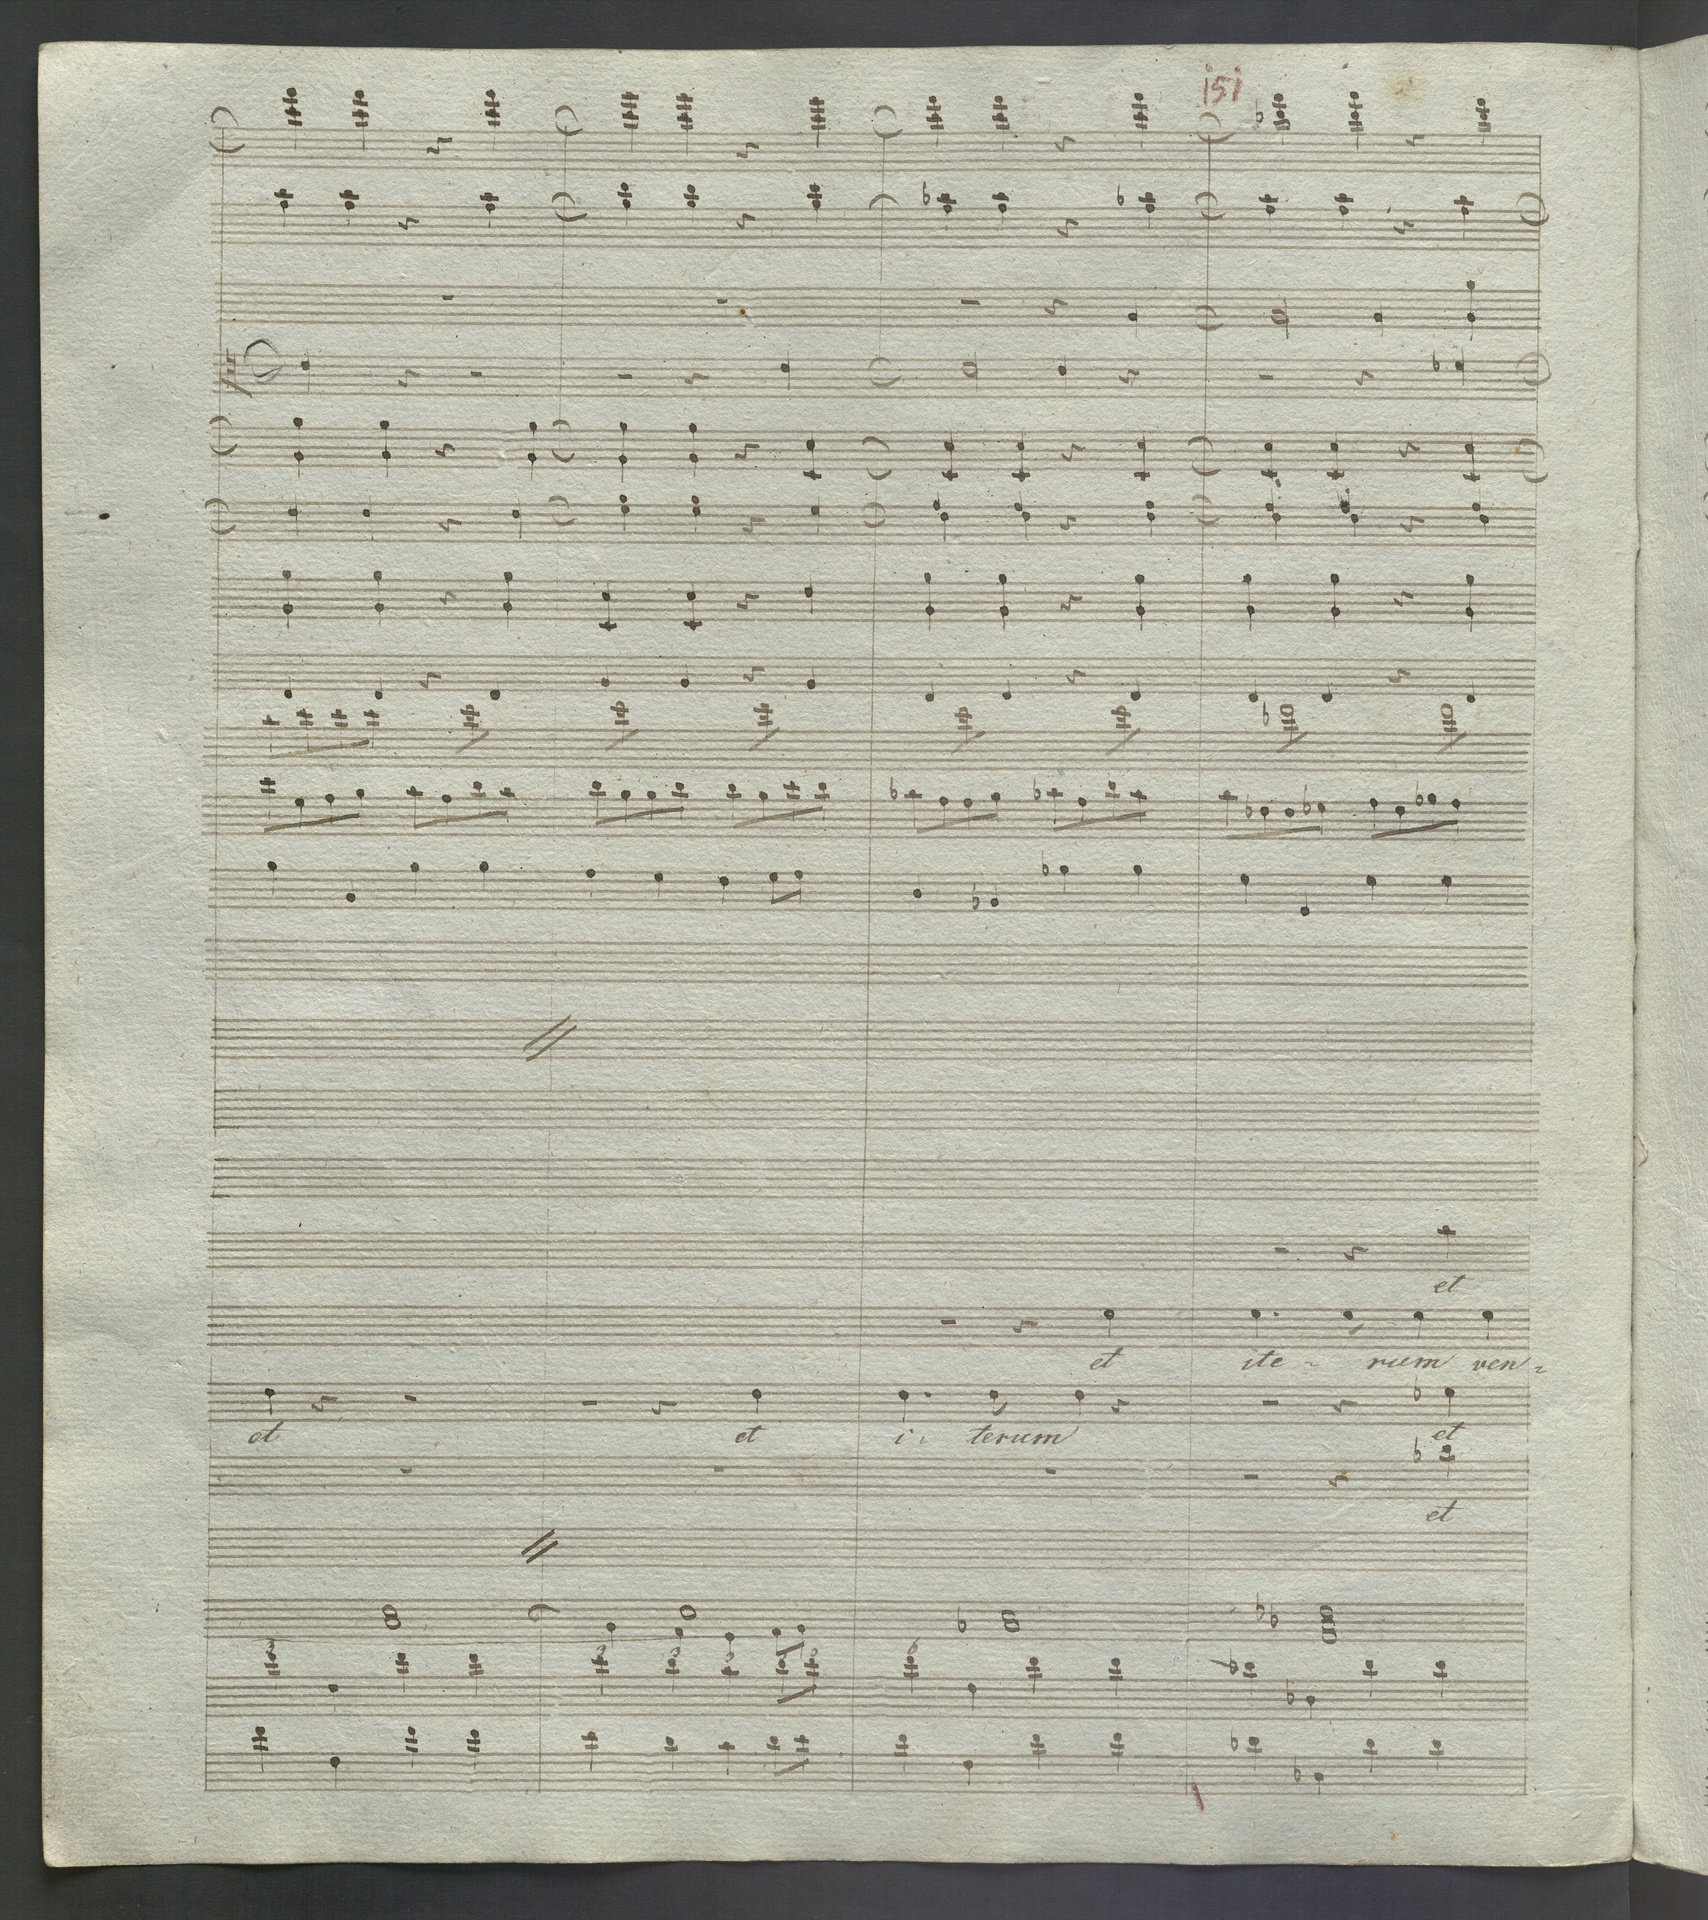 151
et
et ite - rum ven=
et et i: terum et
et
6